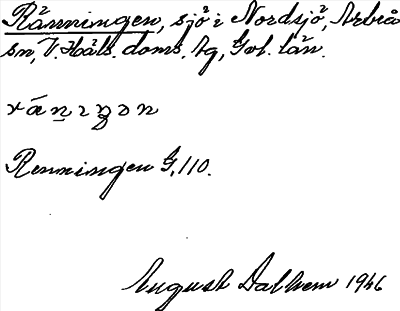 Ränningen, sjö i Nordsjö, Arbrå
sn, V. Häls. doms. tg, Gvl. län.
Renningen G. 110.
August Dalhem 1946